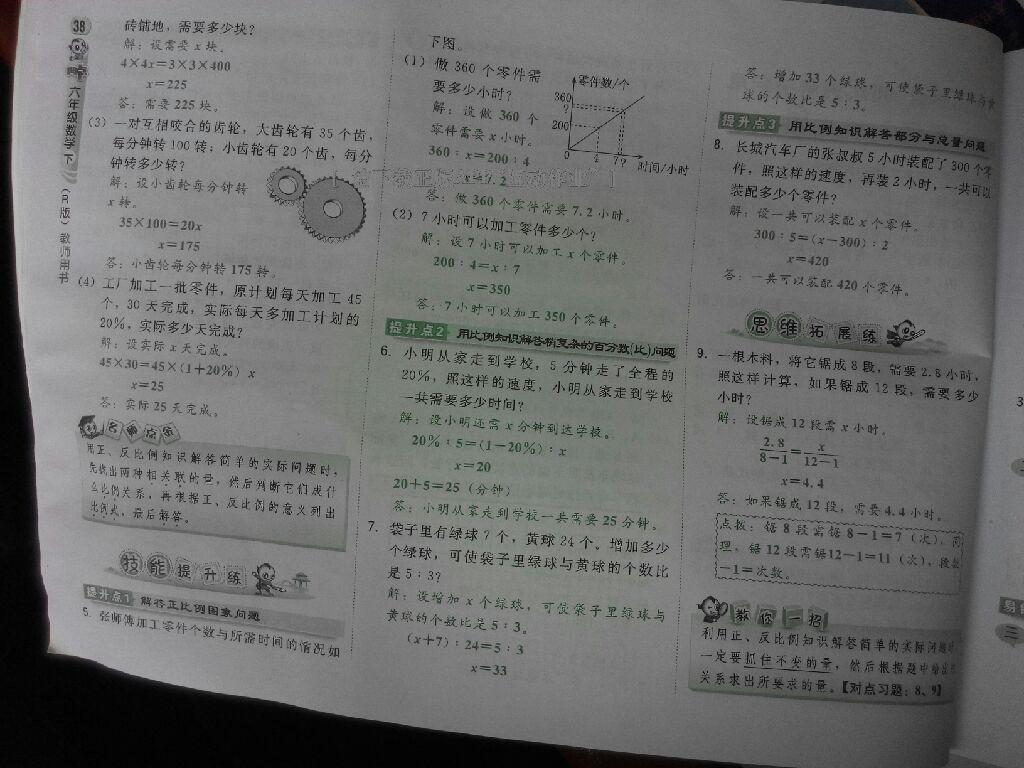 38
六年级数学 下
(R版)
教师用书
砖铺地，需要多少块？
解：设需要 x 块。
4×4x=3×3×400
x=225
答：需要 225 块。
(3) 一对互相咬合的齿轮，大齿轮有 35 个齿，
每分钟转 100 转；小齿轮有 20 个齿，每分
钟转多少转？
解：设小齿轮每分钟转
x 转。
35×100=20x
x=175
答：小齿轮每分钟转 175 转。
(4) 工厂加工一批零件，原计划每天加工 45
个，30 天完成，实际每天多加工计划的
20%，实际多少天完成？
解：设实际 x 天完成。
45×30=45×(1+20%) x
x=25
答：实际 25 天完成。
名师点金
用正、反比例知识解答简单的实际问题时，
先找出两种相关联的量，然后判断它们成什
么比例关系，再根据正、反比例的意义列出
比例式，最后解答。
技能提升练
提升点1 解答正比例图象问题
5. 张师傅加工零件个数与所需时间的情况如
下图。
(1) 做 360 个零件需
要多少小时？
解：设做 360 个
零件需要 x 小时。
360∶x=200∶4
x=7.2
答：做 360 个零件需要 7.2 小时。
零件数/个
360
?
200
0
4
7
?
时间/小时
(2) 7 小时可以加工零件多少个？
解：设 7 小时可以加工 x 个零件。
200∶4=x∶7
x=350
答：7 小时可以加工 350 个零件。
提升点2 用比例知识解答稍复杂的百分数(比)问题
6. 小明从家走到学校，5 分钟走了全程的
20%，照这样的速度，小明从家走到学校
一共需要多少时间？
解：设小明还需 x 分钟到达学校。
20%∶5=(1-20%)∶x
x=20
20+5=25（分钟）
答：小明从家走到学校一共需要 25 分钟。
7. 袋子里有绿球 7 个，黄球 24 个。增加多少
个绿球，可使袋子里绿球与黄球的个数比
是 5∶3？
解：设增加 x 个绿球，可使袋子里绿球与
黄球的个数比是 5∶3。
(x+7)∶24=5∶3
x=33
答：增加 33 个绿球，可使袋子里绿球与黄
球的个数比是 5∶3。
提升点3 用比例知识解答部分与总量问题
8. 长城汽车厂的张叔叔 5 小时装配了 300 个零
件，照这样的速度，再装 2 小时，一共可以
装配多少个零件？
解：设一共可以装配 x 个零件。
300∶5=(x-300)∶2
x=420
答：一共可以装配 420 个零件。
思维拓展练
9. 一根木料，将它锯成 8 段，需要 2.8 小时，
照这样计算，如果锯成 12 段，需要多少
小时？
解：设锯成 12 段需 x 小时。
2.8/(8-1)=x/(12-1)
x=4.4
答：如果锯成 12 段，需要 4.4 小时。
点拨：锯 8 段需锯 8-1=7（次），同
理，锯 12 段需锯12-1=11（次），段数
-1=次数。
教你一招
利用正、反比例知识解答简单的实际问题时
一定要抓住不变的量，然后根据题中给出的
关系求出所要求的量。【对点习题：8、9】
三